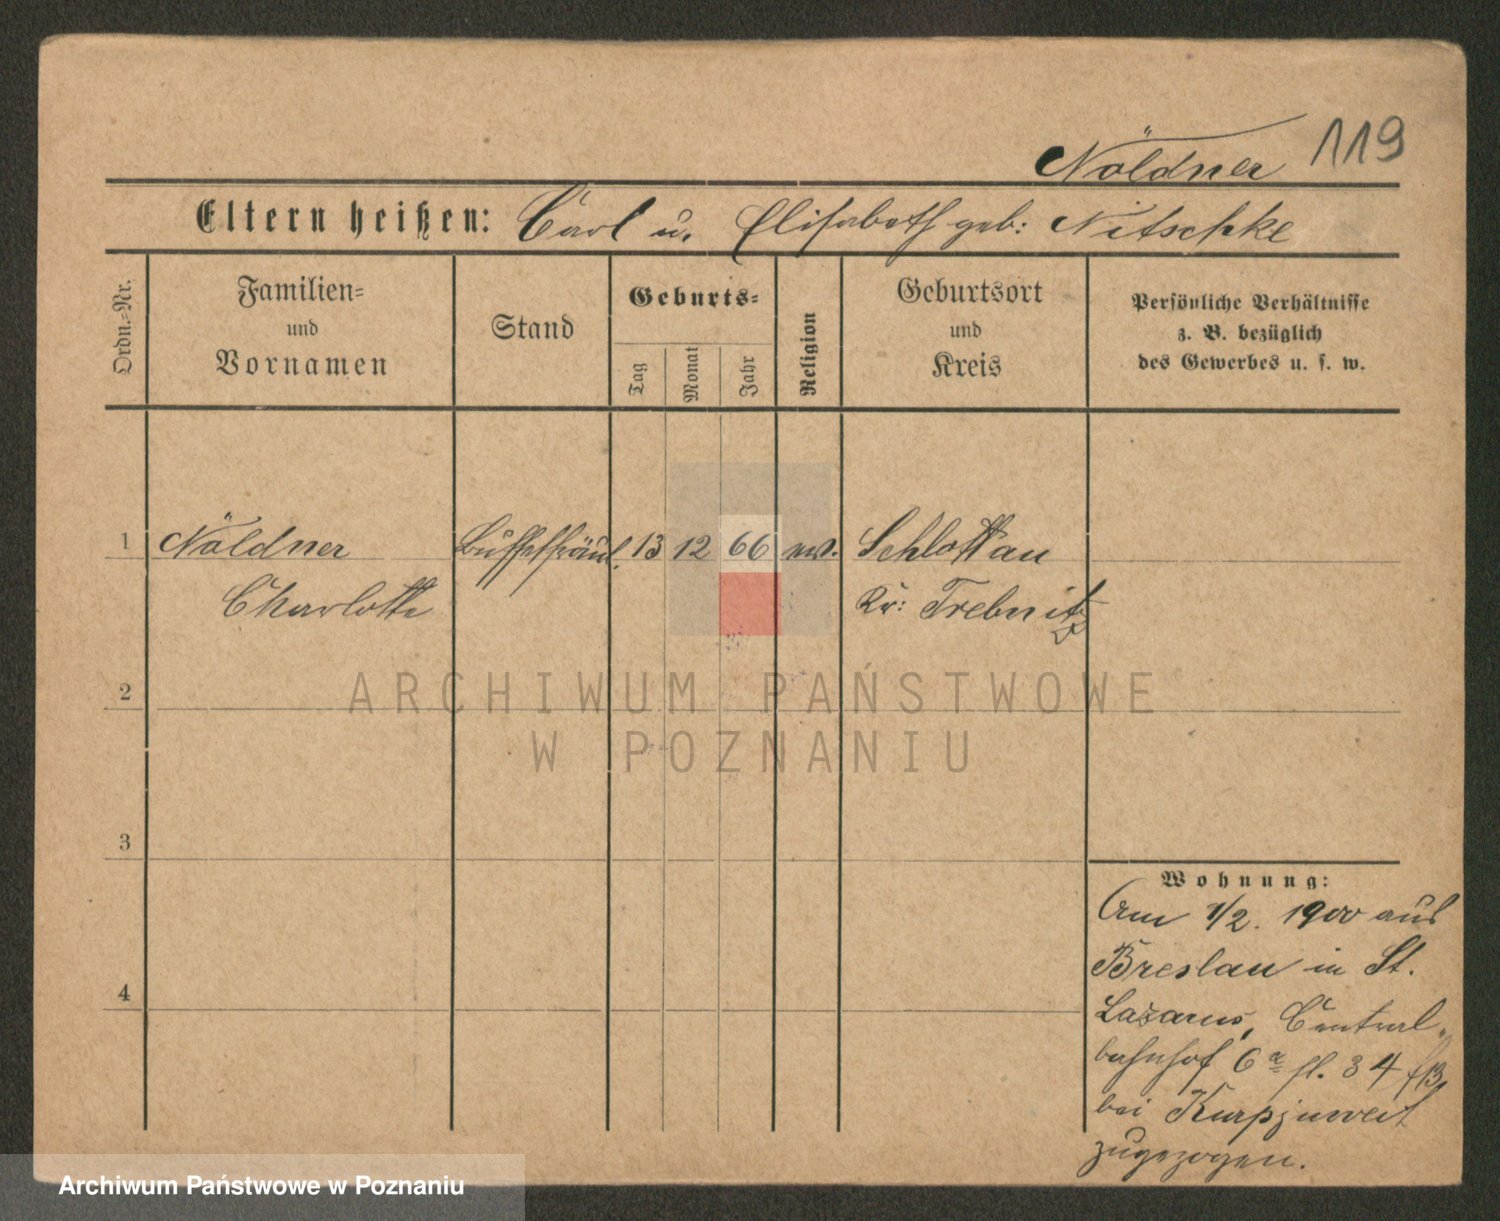 Nöldner 119
Eltern heißen: Carl u. Elisabeth geb: Nitschke
Ordn.-Nr.
Familien-
und
Vornamen
Stand
Geburts-
Tag
Monat
Jahr
Religion
Geburtsort
und
Kreis
Persönliche Verhältnisse
z. B. bezüglich
des Gewerbes u. s. w.
1 Nöldner Buffetfräul. 13 12 66 ev. Schlottau
Charlotte Kr: Trebnitz
2
ARCHIWUM PAŃSTWOWE
W POZNANIU
3
Wohnung:
Am 1/2. 1900 aus
Breslau in St.
4
Lazarus, Central-
bahnhof 6a 34
bei Kurpjuweit
zugezogen.
Archiwum Państwowe w Poznaniu